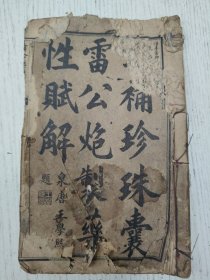 補珍珠囊
雷公炮製藥
性賦解
泉唐
題